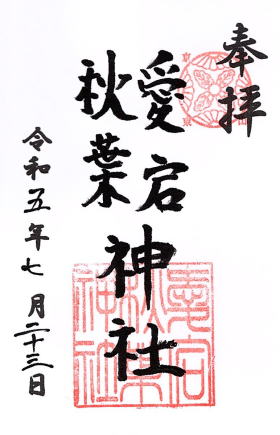 奉拝
愛宕
秋葉
神社
令和五年七月二十三日
愛宕
秋葉
神社